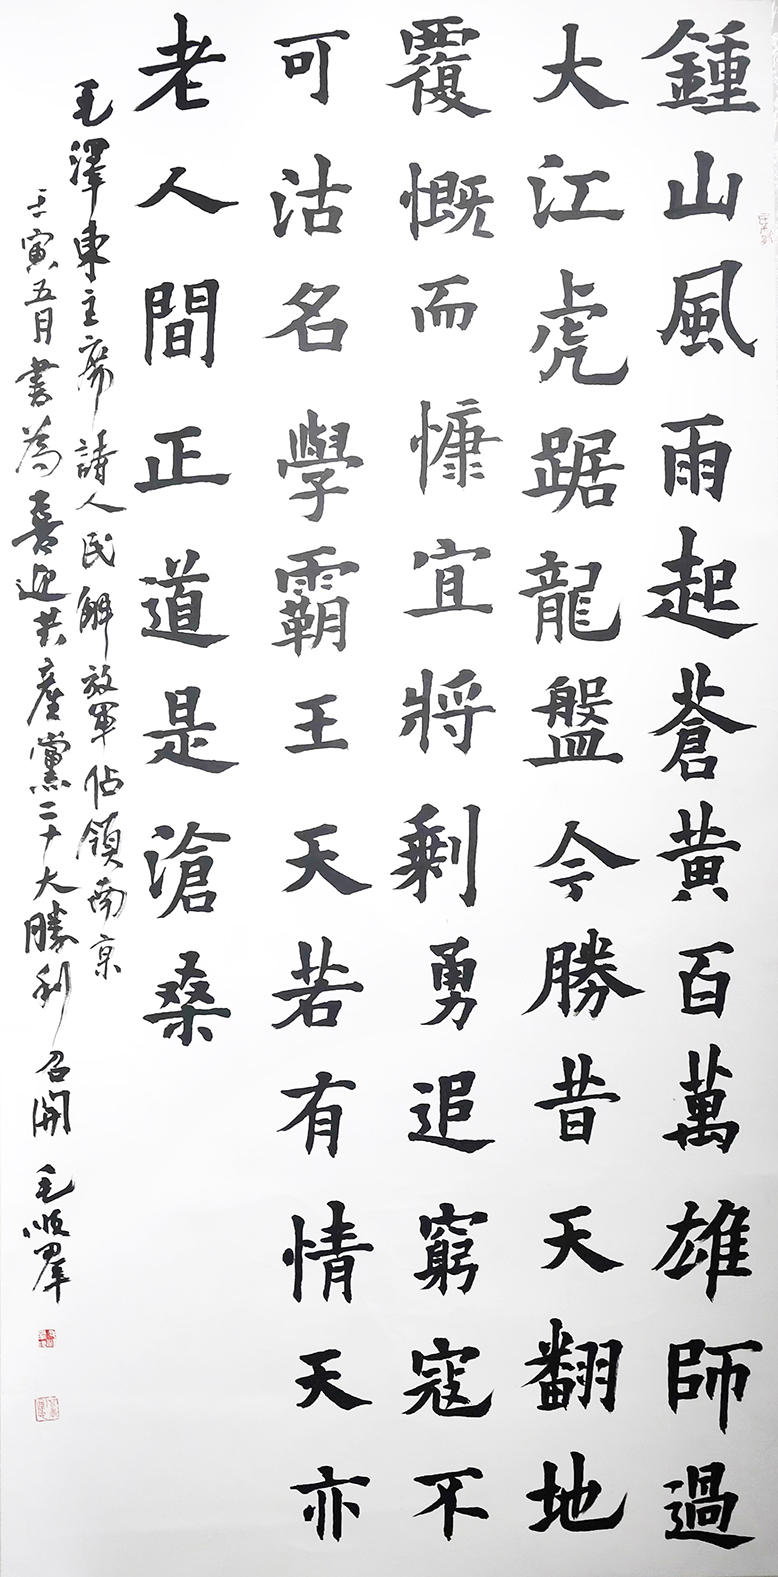 鍾山風雨起蒼黃百萬雄師過
大江虎踞龍盤今勝昔天翻地
覆慨而慷宜將剩勇追窮寇不
可沽名學霸王天若有情天亦
老人間正道是滄桑
毛澤東主席詩人民解放軍佔領南京
壬寅五月書為喜迎共產黨二十大勝利召開 毛順羣